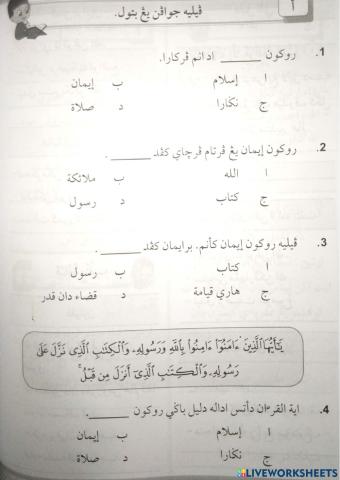 ا
ڤيليه جواڤن يڠ بتول.
1. روكون ______ اد انم ڤركارا.
ا إسلام ب إيمان
ج نݢارا د صلاة
2. روكون إيمان يڠ ڤرتام ڤرچاي كڤد ______.
ا الله ب ملائكة
ج كتاب د رسول
3. ڤيليه روكون إيمان كأنم. برايمان كڤد ______.
ا كتاب ب رسول
ج هاري قيامة د قضاء دان قدر
يَٰٓأَيُّهَا ٱلَّذِينَ ءَامَنُوٓا۟ ءَامِنُوا۟ بِٱللَّهِ وَرَسُولِهِۦ وَٱلْكِتَٰبِ ٱلَّذِى نَزَّلَ عَلَىٰ
رَسُولِهِۦ وَٱلْكِتَٰبِ ٱلَّذِىٓ أَنزَلَ مِن قَبْلُ ۚ
4. اية القرءان دأتس اداله دليل باݢي روكون ______.
ا إسلام ب إيمان
ج نݢارا د صلاة
LIVEWORKSHEETS